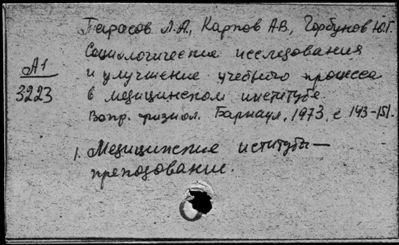 Тарасов Л.А., Карпов А.В., Горбунов Ю.Г.
Социологические исследования
и улучшение учебного процесса
в медицинском институте.
Вопр. физиол. Барнаул, 1973, с 143-151.
А1
3223
1. Медицинские иституты—
преподование.